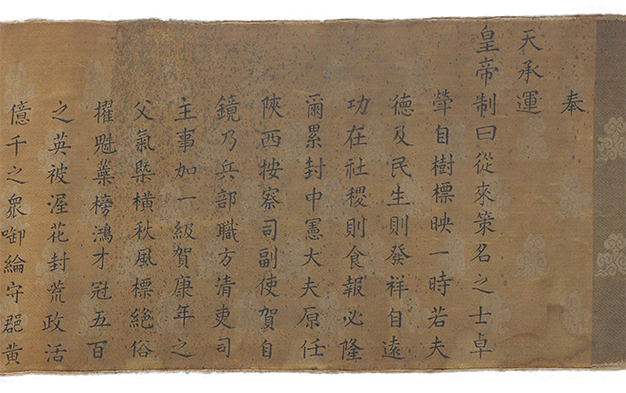 奉
天承運
皇帝制曰從來策名之士卓
犖自樹標映一時若夫
德及民生則發祥自遠
功在社稷則食報必隆
爾累封中憲大夫原任
陝西按察司副使賀自
鏡乃兵部職方清吏司
主事加一級賀康年之
父氣槩橫秋風標絕俗
擢魁蕋榜鴻才冠五百
之英被渥花封荒政活
億千之衆啣綸守郡黃